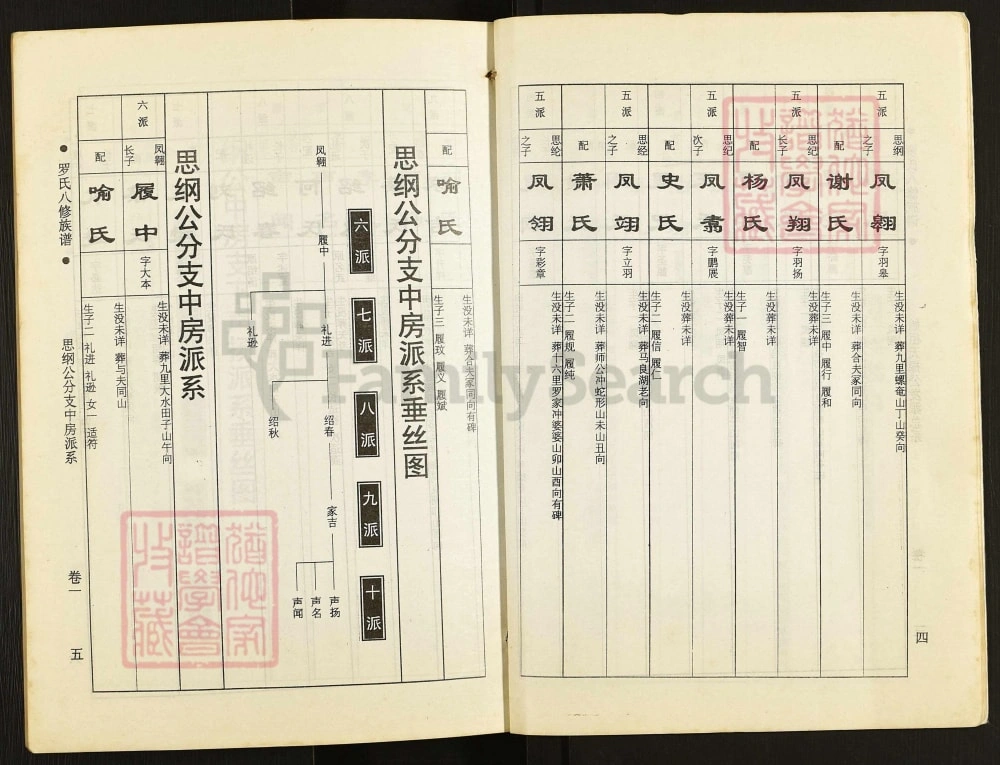 五派
思纲之子
凤翱
字羽皋
生没未详 葬九里螺奄山丁山癸向
配
谢氏
生没未详 葬合夫冢同向
生子三 履中 履行 履和
五派
思纪长子
凤翔
字羽扬
生没葬未详
配
杨氏
生没葬未详
生子一 履智
五派
思纪次子
凤翥
字鹏展
生没葬未详
配
史氏
生没葬未详
生子二 履信 履仁
五派
思经之子
凤翊
字立羽
生没未详 葬乌良湖老向
配
萧氏
生没未详 葬师公冲蛇形山未山丑向
生子二 履规 履纯
五派
思纶之子
凤翎
字彩章
生没未详 葬十六里罗家冲婆婆山卯山酉向有碑
四
配
喻氏
生没未详 葬合夫冢同向有碑
生子三 履玟 履义 履斌
思纲公分支中房派系垂丝图
六派
七派
八派
九派
十派
凤翱
履中
礼进
礼逊
绍春
绍秋
家吉
声扬
声名
声闻
思纲公分支中房派系
六派
凤翱长子
履中
字大本
生没未详 葬九里大水田子山午向
配
喻氏
生没未详 葬与夫同山
生子二 礼进 礼逊 女一 适符
罗氏八修族谱
思纲公分支中房派系
卷一
五
FamilySearch